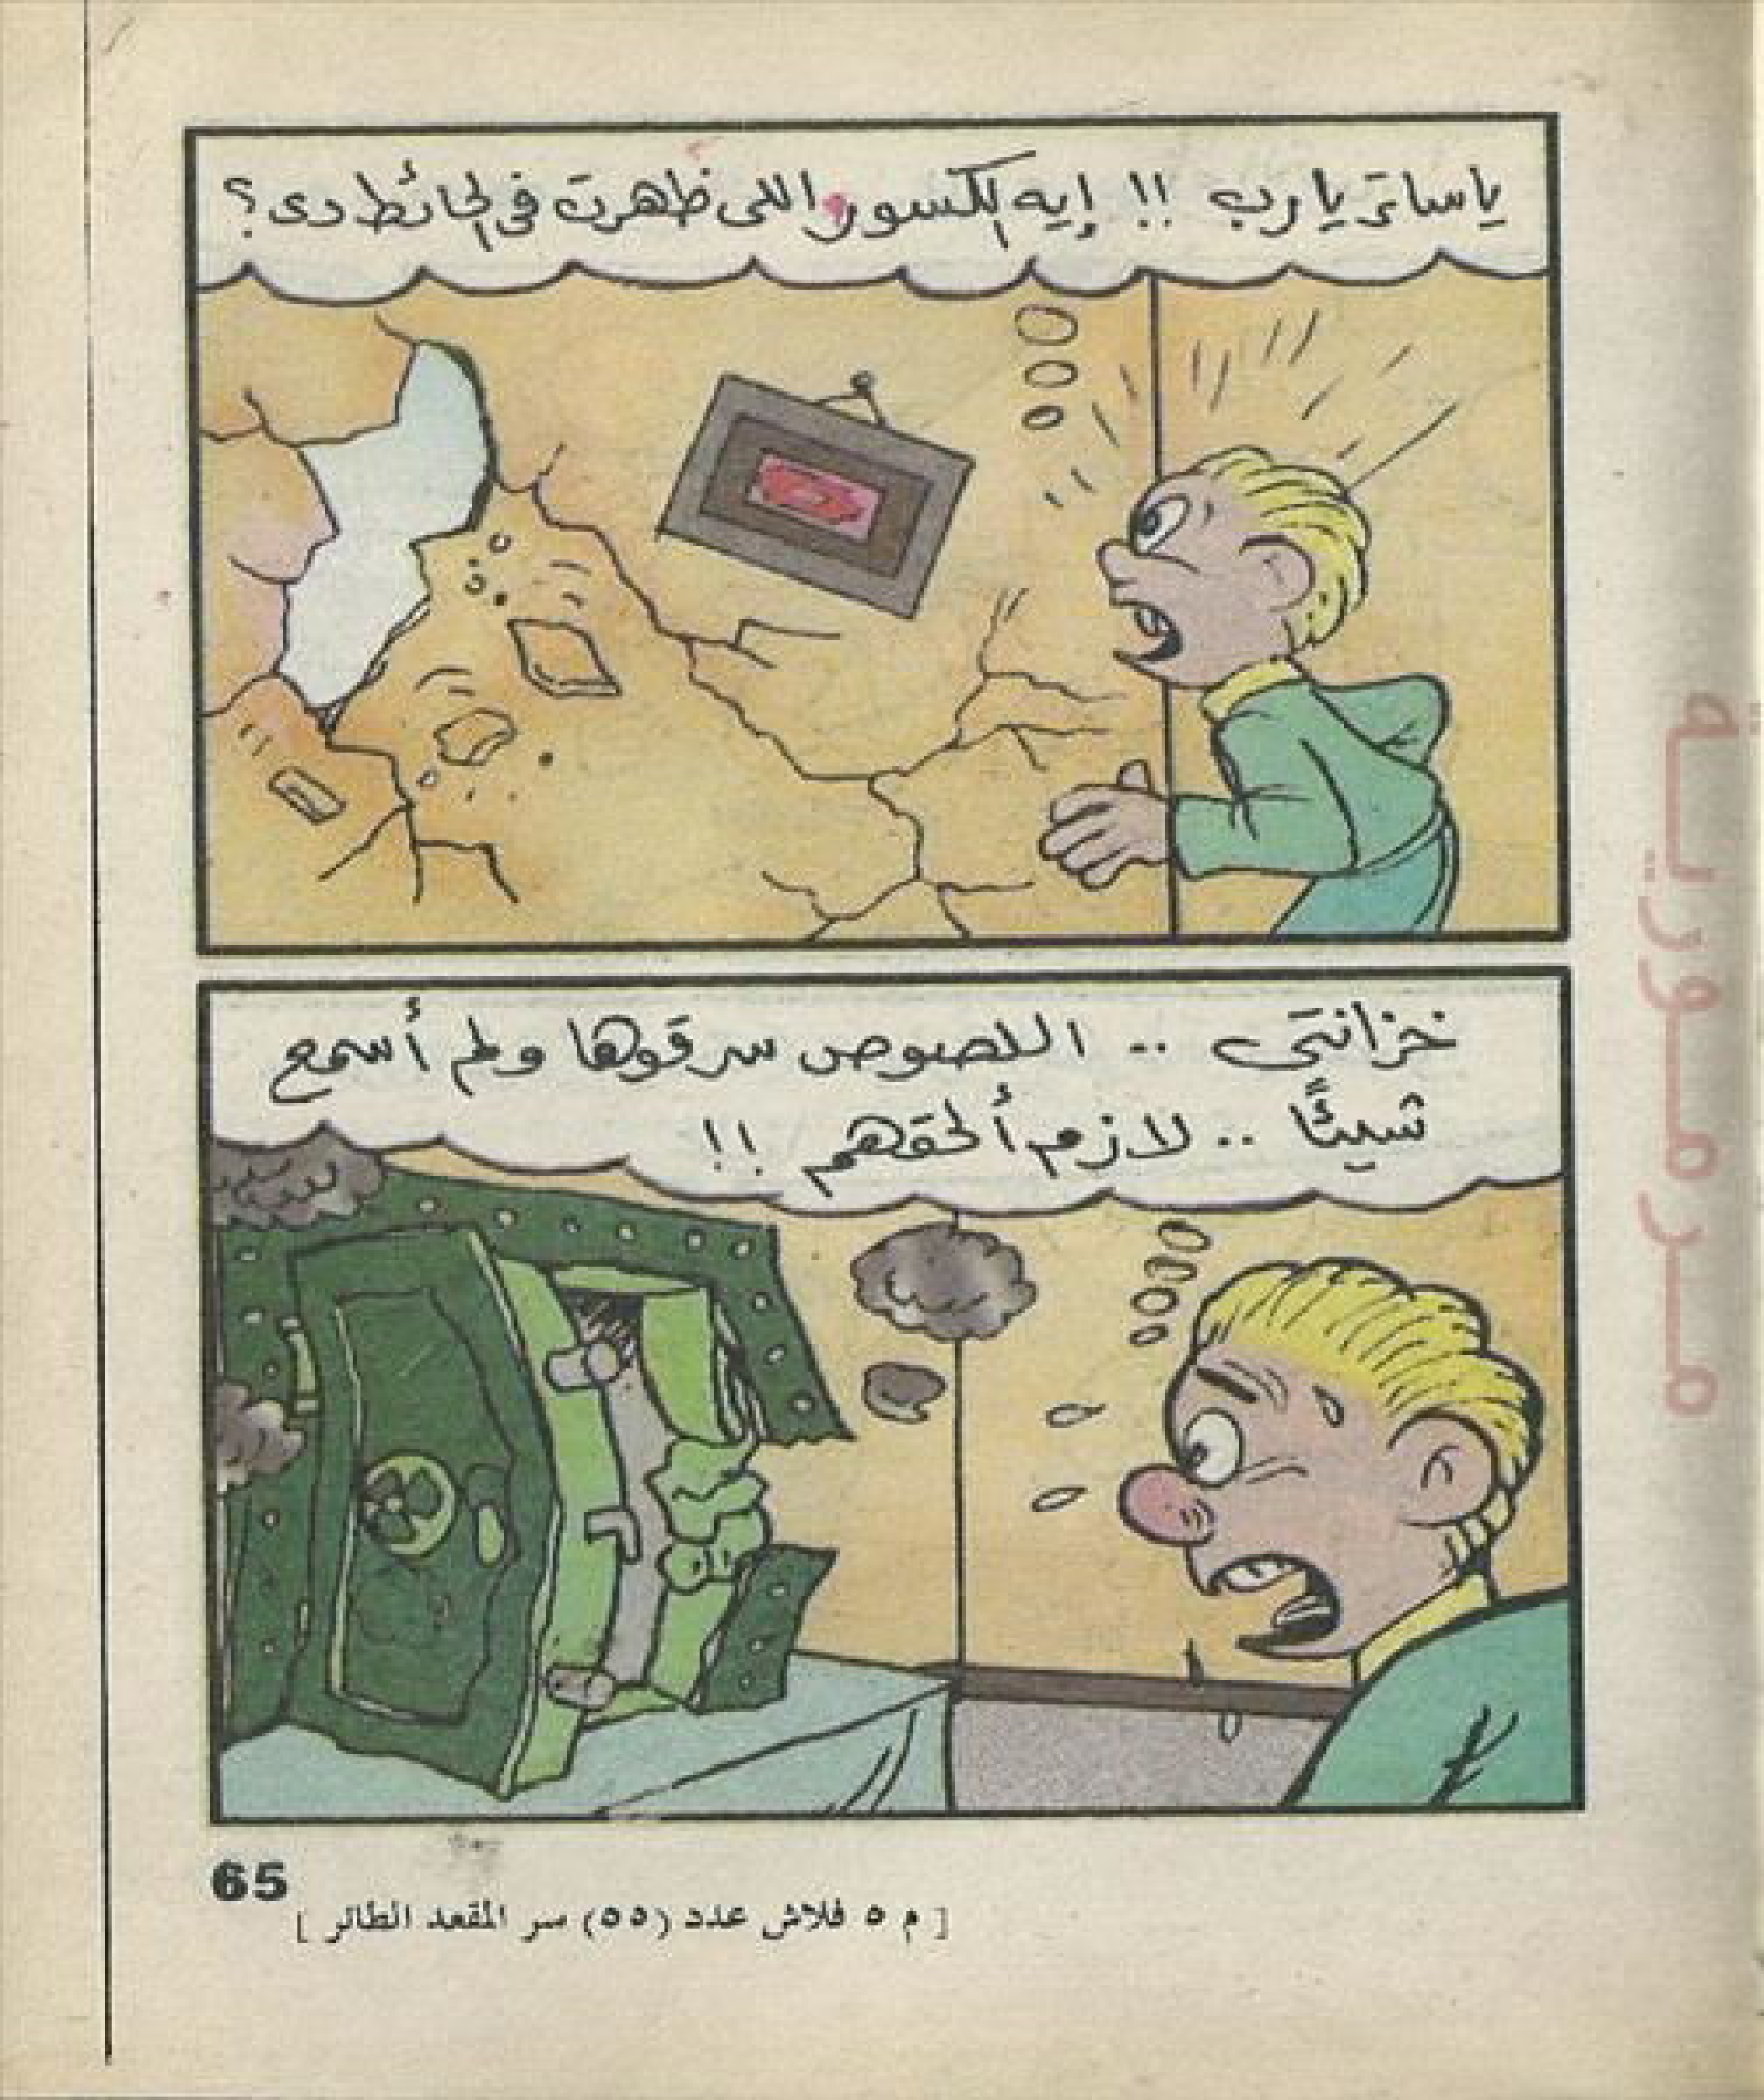 ياساتر يارب !! إيه الكسور اللى ظهرت فى الحائط دى؟
خزانتى .. اللصوص سرقوها ولم أسمع
شيئًا .. لازم ألحقهم !!
65
[ م ٥ فلاش عدد (٥٥) سر المقعد الطائر ]